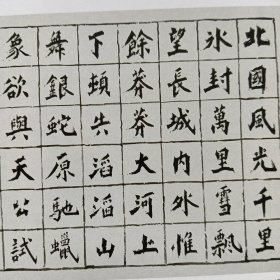 北國風光千里
氷封萬里雪飄
望長城内外惟
餘莽莽大河上
下頓失滔滔山
舞銀蛇原馳蠟
象欲與天公試